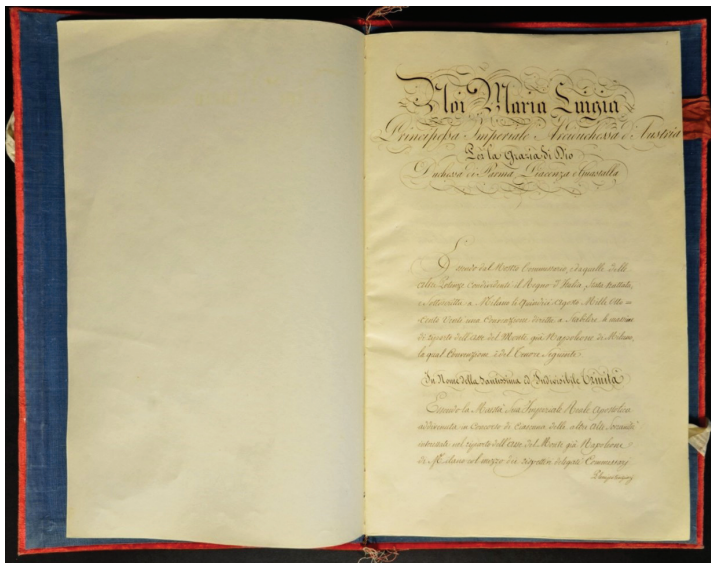 Noi Maria Luigia
Principessa Imperiale Arciduchessa d'Austria
Per la Grazia di Dio
Duchessa di Parma, Piacenza e Guastalla
Essendo dal Nostro Commissario, e da quelli delle
altre Potenze condividenti il Regno d'Italia, stata trattata,
e sottoscritta a Milano li Quindici Agosto Mille Otto
Cento Venti una Convenzione diretta a stabilire le massime
di riparto dell'asse del Monte già Napoleone di Milano,
la qual Convenzione è del Tenore Seguente
In Nome della Santissima ed Indivisibile Trinità
Essendo la Maestà Sua Imperiale Reale Apostolica
addivenuta in concerto di ciascuna delle altre Alte
interessate nel riparto dell'asse del Monte già Napoleone
di Milano col mezzo dei rispettivi delegati Commissarj